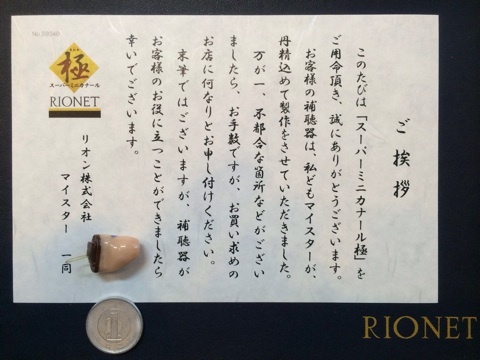 ご挨拶
このたびは「スーパーミニカナール極」を
ご用命頂き、誠にありがとうございます。
お客様の補聴器は、私どもマイスターが、
丹精込めて製作をさせていただきました。
万が一、不都合な箇所などがござい
ましたら、お手数ですが、お買い求めの
お店に何なりとお申し付けください。
末筆ではございますが、補聴器が
お客様のお役に立つことができましたら
幸いでございます。
リオン株式会社
マイスター 一同
極
スーパーミニカナール
RIONET
1
RIONET